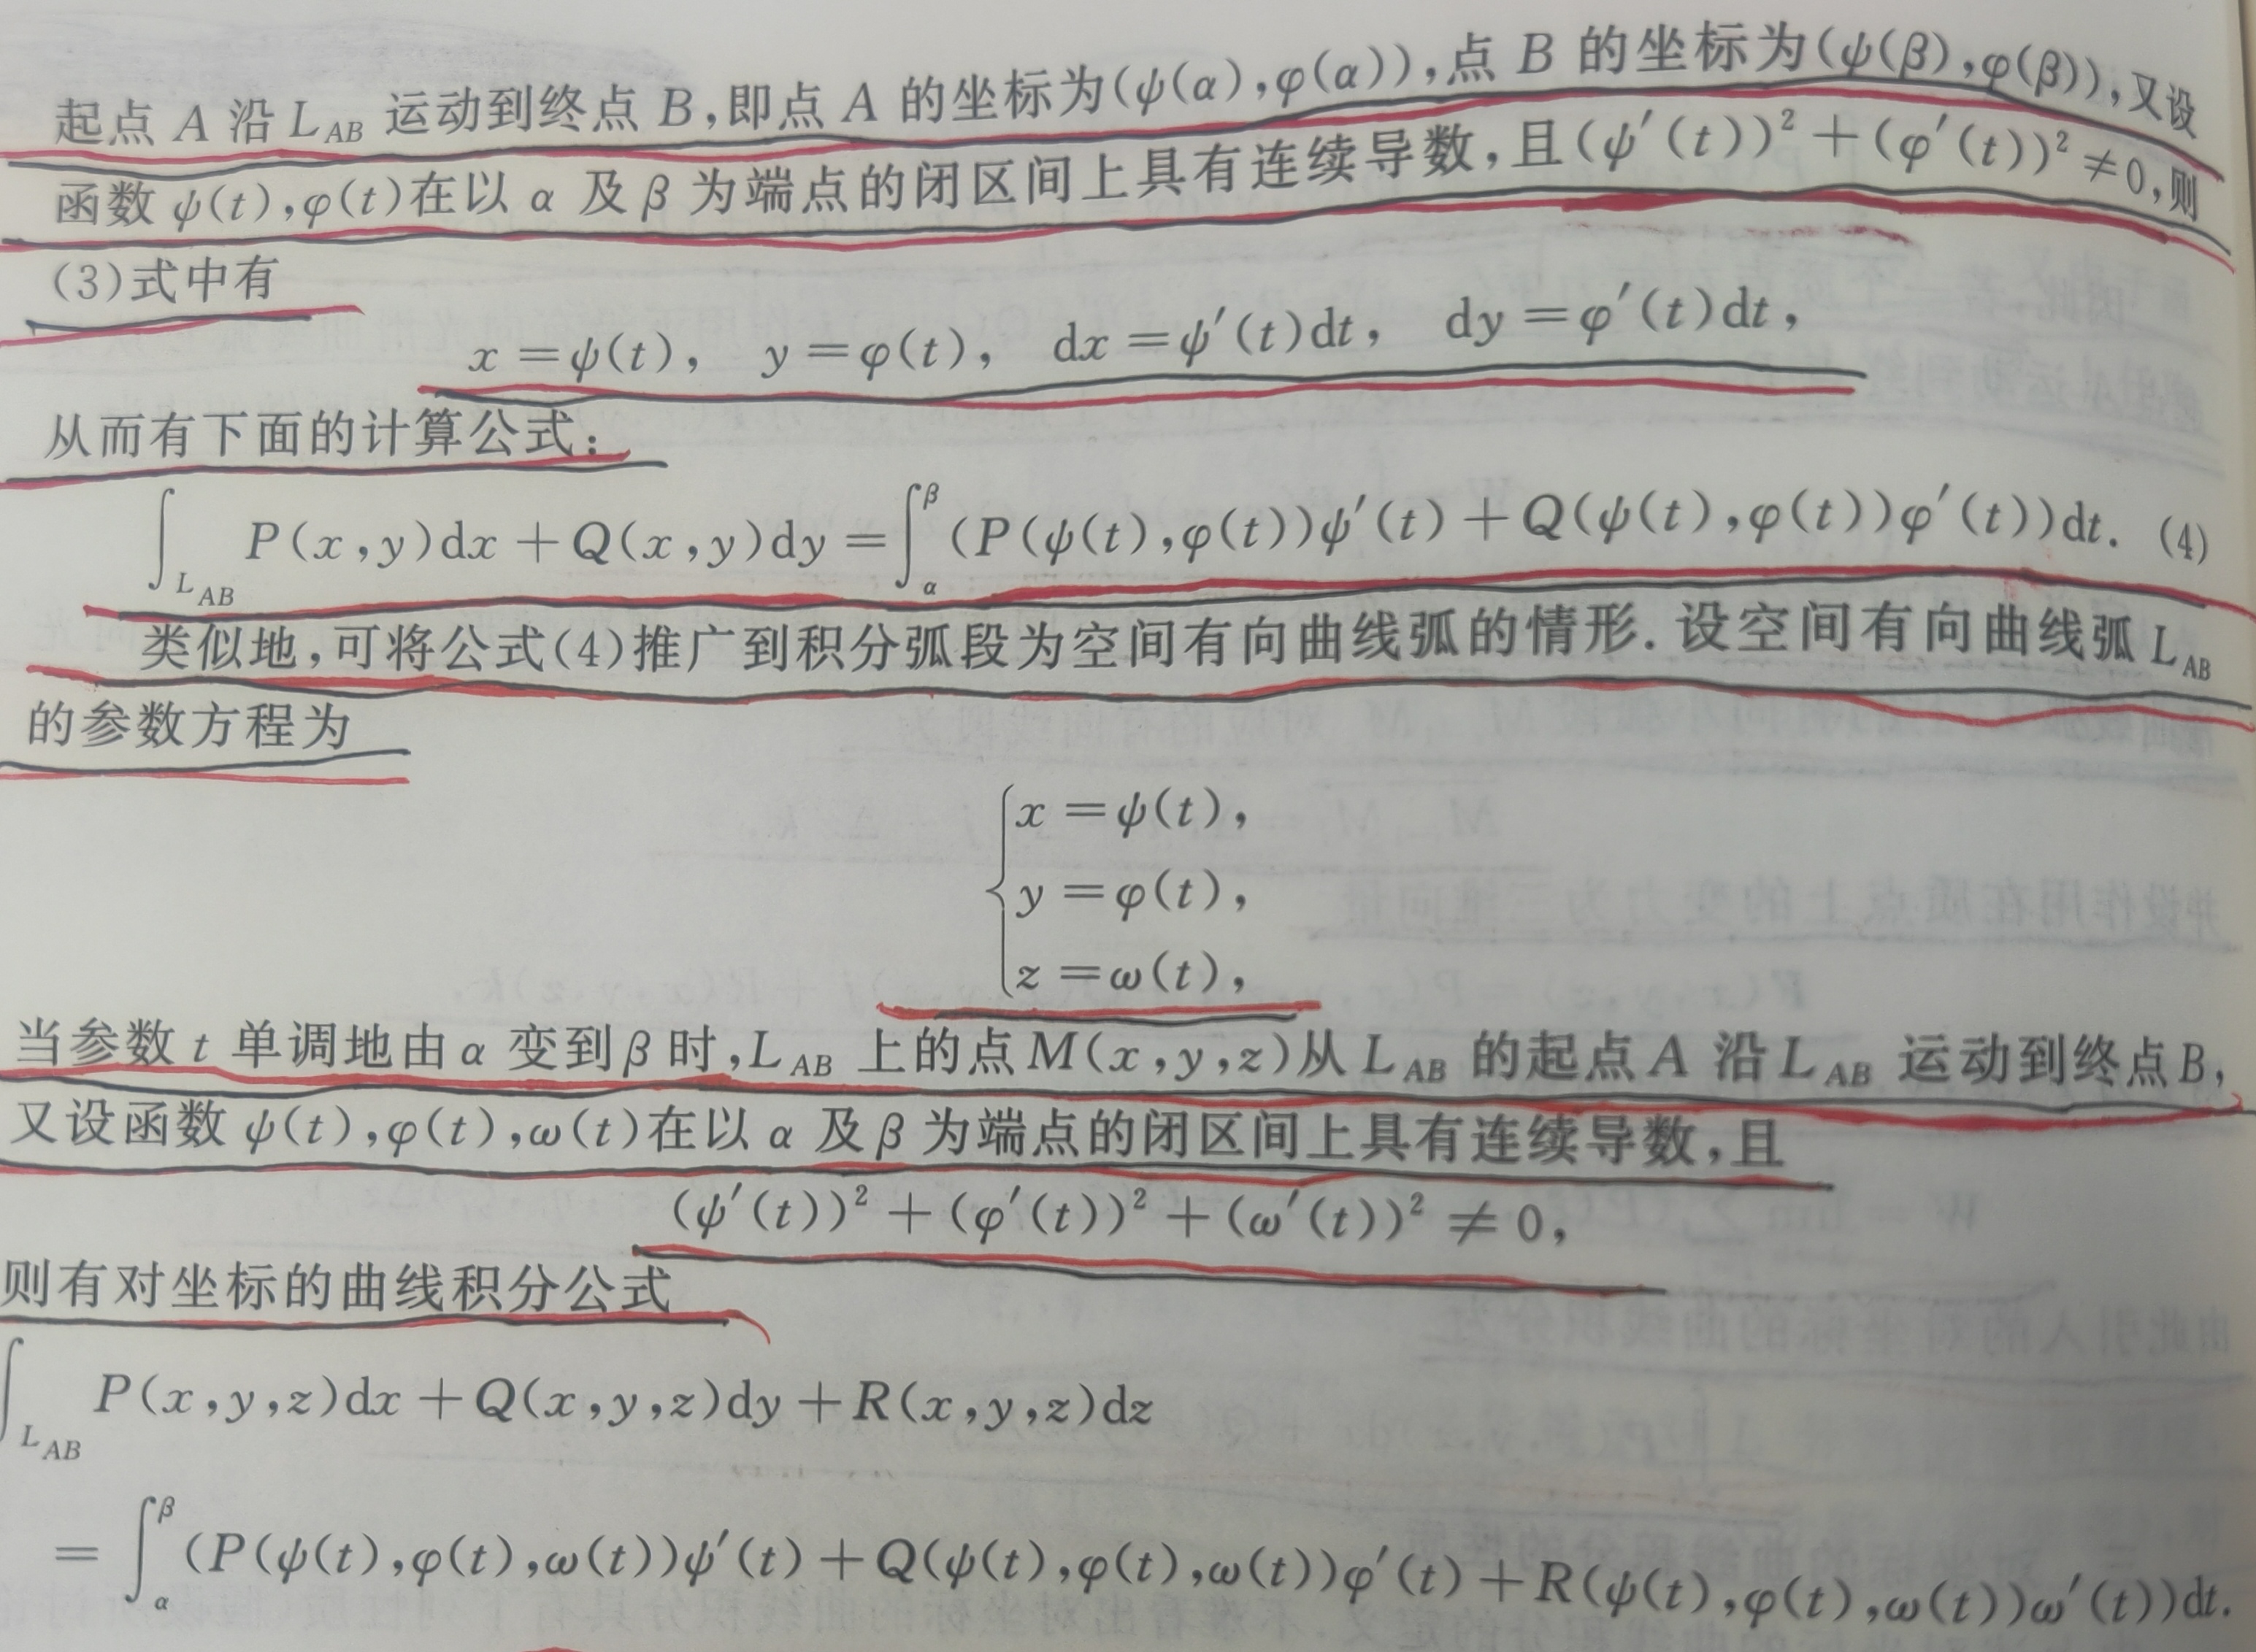 起点 A 沿 L_{AB} 运动到终点 B,即点 A 的坐标为(ψ(α),φ(α)),点 B 的坐标为(ψ(β),φ(β)),又设
函数 ψ(t),φ(t)在以 α 及 β 为端点的闭区间上具有连续导数,且(ψ′(t))²+(φ′(t))²≠0,则
(3)式中有
x=ψ(t), y=φ(t), dx=ψ′(t)dt, dy=φ′(t)dt,
从而有下面的计算公式:
∫_{L_{AB}} P(x,y)dx+Q(x,y)dy=∫_α^β (P(ψ(t),φ(t))ψ′(t)+Q(ψ(t),φ(t))φ′(t))dt. (4)
类似地,可将公式(4)推广到积分弧段为空间有向曲线弧的情形. 设空间有向曲线弧 L_{AB}
的参数方程为
x=ψ(t),
y=φ(t),
z=ω(t),
当参数 t 单调地由 α 变到 β 时,L_{AB} 上的点 M(x,y,z)从 L_{AB} 的起点 A 沿 L_{AB} 运动到终点 B,
又设函数 ψ(t),φ(t),ω(t)在以 α 及 β 为端点的闭区间上具有连续导数,且
(ψ′(t))²+(φ′(t))²+(ω′(t))²≠0,
则有对坐标的曲线积分公式
∫_{L_{AB}} P(x,y,z)dx+Q(x,y,z)dy+R(x,y,z)dz
=∫_α^β (P(ψ(t),φ(t),ω(t))ψ′(t)+Q(ψ(t),φ(t),ω(t))φ′(t)+R(ψ(t),φ(t),ω(t))ω′(t))dt.